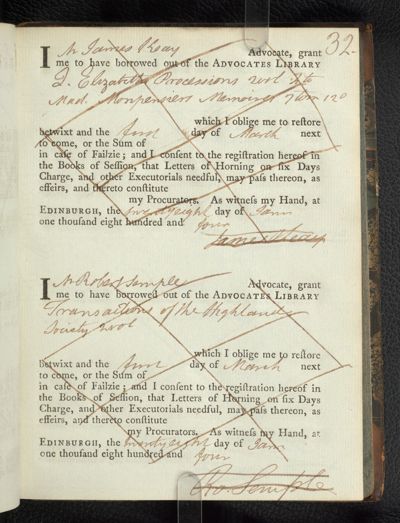 32
I Mr James Keay Advocate, grant
me to have borrowed out of the ADVOCATES LIBRARY
Q. Elizabeths Processions 2 vol 4to
Mad. Monpensiers Memoires 7 tom 12o
which I oblige me to reſtore
betwixt and the first day of March next
to come, or the Sum of
in caſe of Failzie; and I conſent to the regiſtration hereof in
the Books of Seſſion, that Letters of Horning on ſix Days
Charge, and other Executorials needful, may paſs thereon, as
effeirs, and thereto conſtitute
my Procurators. As witneſs my Hand, at
EDINBURGH, the twenty eight day of Jany
one thouſand eight hundred and four
James Keay
I Mr Robert Semple Advocate, grant
me to have borrowed out of the ADVOCATES LIBRARY
Transactions of the Highland
Society vol
which I oblige me to reſtore
betwixt and the first day of March next
to come, or the Sum of
in caſe of Failzie; and I conſent to the regiſtration hereof in
the Books of Seſſion, that Letters of Horning on ſix Days
Charge, and other Executorials needful, may paſs thereon, as
effeirs, and thereto conſtitute
my Procurators. As witneſs my Hand, at
EDINBURGH, the twenty eight day of Jany
one thouſand eight hundred and four
Ro. Semple